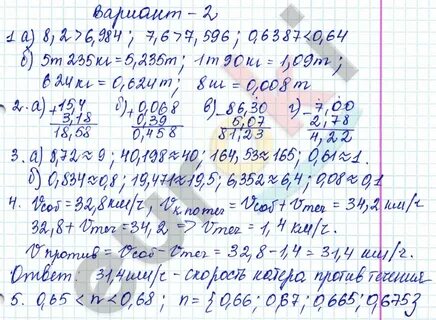 Вариант-2
1. а) 8,2>6,984; 7,6>7,596; 0,6387<0,64
б) 5т 235кг=5,235т; 1т 90кг=1,09т;
624кг=0,624т; 8кг=0,008т
2. а) +15,4 б) +0,068 в) -86,30 г) -7,00
3,18 0,39 5,07 2,78
18,58 0,458 81,23 4,22
3. а) 8,72≈9; 40,198≈40; 164,53≈165; 0,61≈1.
б) 0,834≈0,8; 19,471≈19,5; 6,352≈6,4; 0,08≈0,1
4. Vсоб=32,8км/ч; Vк по теч=Vсоб+Vтеч=34,2 км/ч
32,8+Vтеч=34,2 => Vтеч=1,4 км/ч.
Vпротив=Vсоб-Vтеч=32,8-1,4=31,4 км/ч
Ответ 31,4км/ч-скорость катера против течения
5. 0,65<n<0,68; n={0,66; 0,67; 0,665; 0,675}